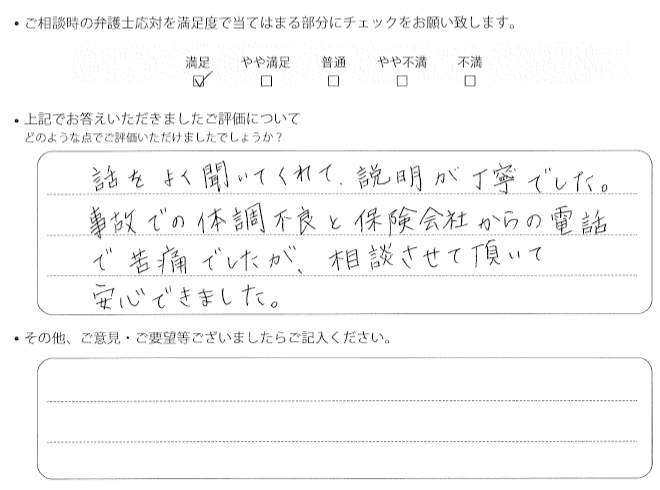 • ご相談時の弁護士応対を満足度で当てはまる部分にチェックをお願い致します。
満足 やや満足 普通 やや不満 不満
☑ ☐ ☐ ☐ ☐
• 上記でお答えいただきましたご評価について
どのような点でご評価いただけましたでしょうか？
話をよく聞いてくれて、説明が丁寧でした。
事故での体調不良と保険会社からの電話
で苦痛でしたが、相談させて頂いて
安心できました。
• その他、ご意見・ご要望等ございましたらご記入ください。